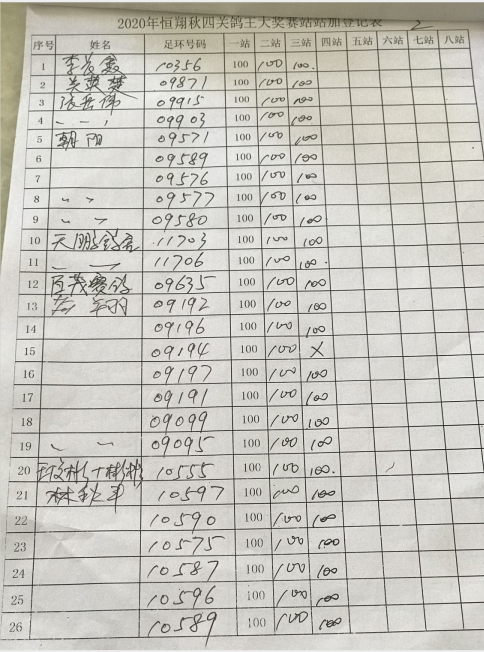 2020年恒翔秋四关鸽王大奖赛站站加登记表 2
序号 姓名 足环号码 一站 二站 三站 四站 五站 六站 七站 八站
1 10356 100 100 100.
2 09871 100 100 100
3 09915 100 100 100
4 〃 〃 09903 100 100 100
5 朝阳 09571 100 100 100
6 09589 100 100 100
7 09576 100 100 100
8 〃 〃 09577 100 100 100
9 〃 〃 09580 100 100 100
10 天鹏鸽舍 11703 100 100 100
11 〃 〃 11706 100 100 100.
12 赛鸽 09635 100 100 100
13 09192 100 100 100
14 09196 100 100 100
15 09194 100 100 X
16 09197 100 100 100
17 09191 100 100 100
18 09099 100 100 100
19 〃 〃 09095 100 100 100
20 10555 100 100 100.
21 林 10597 100 100 100
22 10590 100 100 100
23 10575 100 100 100
24 10587 100 100 100
25 10596 100 100 100
26 10589 100 100 100